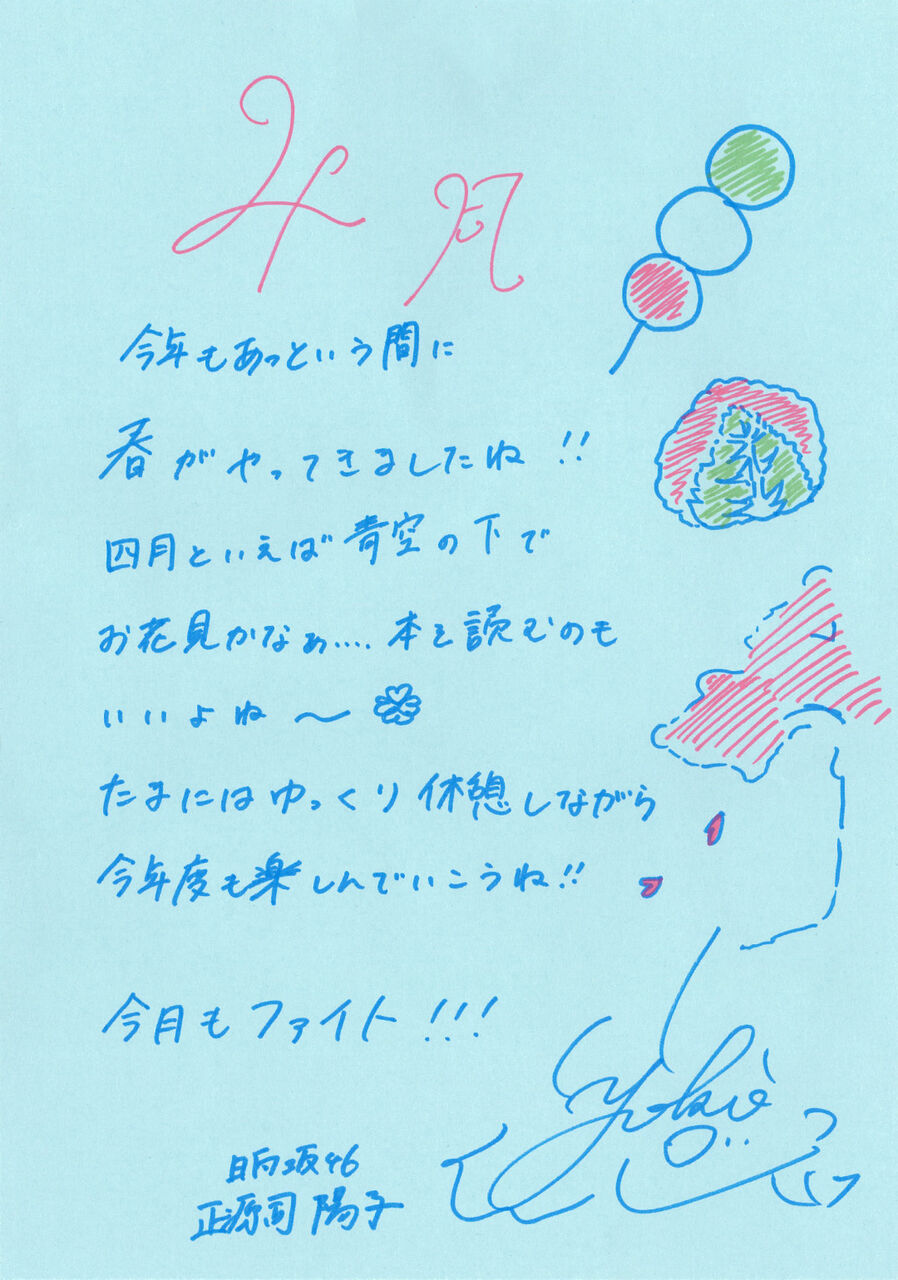 4月
今年もあっという間に
春がやってきましたね!!
四月といえば青空の下で
お花見かなぁ.... 本を読むのも
いいよね〜
たまにはゆっくり休憩しながら
今年度も楽しんでいこうね!!
今月もファイト!!!
日向坂46
正源司 陽子